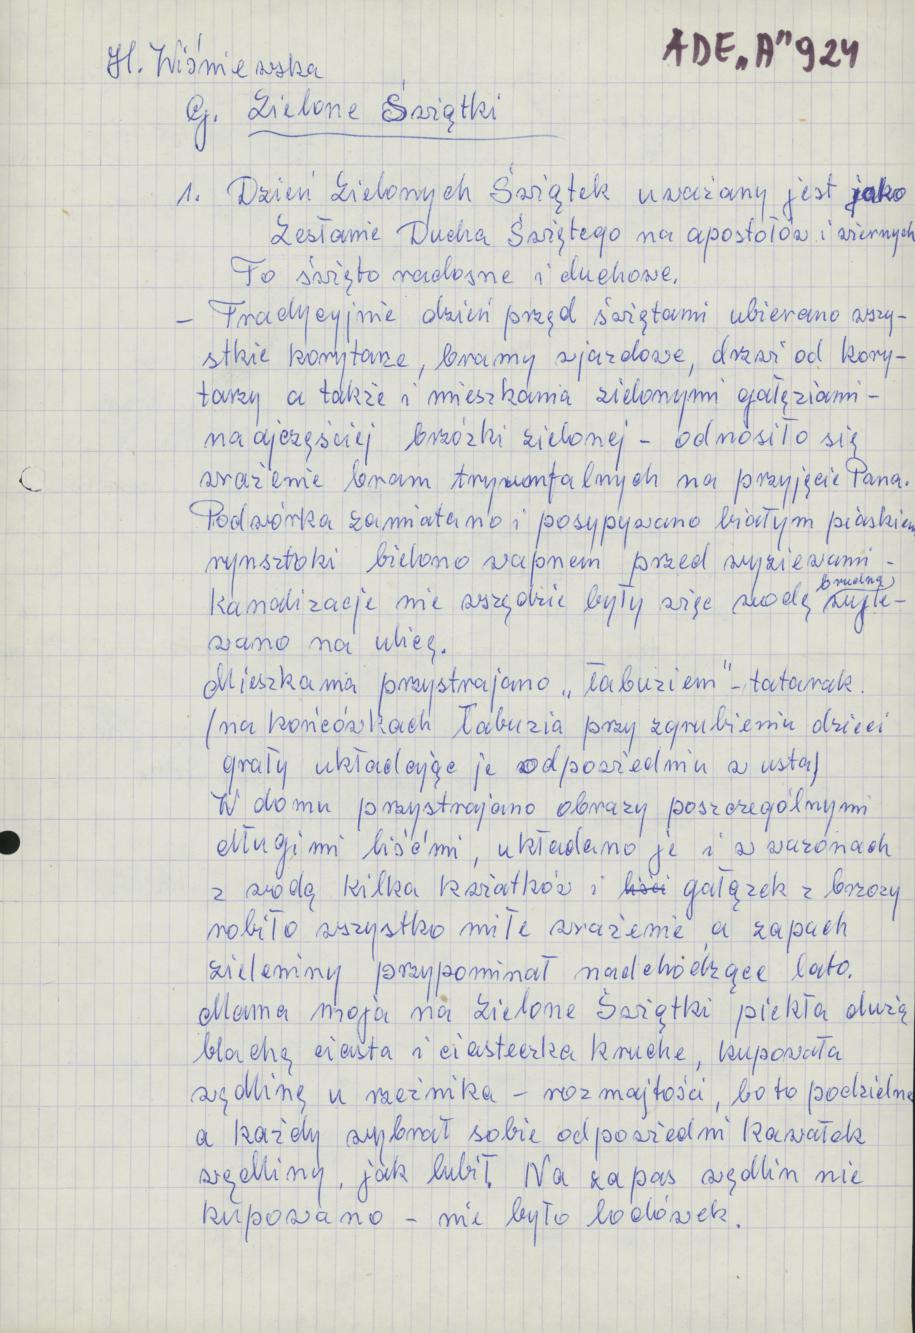 H. Wiśniewska
ADE „A” 924
G. Zielone Świątki
1. Dzień Zielonych Świątek uważany jest jako
Zesłanie Ducha Świętego na apostołów i wiernych
To święto radosne i duchowe.
– Tradycyjnie dzień przed świętami ubierano wszy-
stkie korytarze, bramy wjazdowe, drzwi od kory-
tarzy a także i mieszkania zielonymi gałęziami –
naajczęściej brzózki zielonej – odnosiło się
wrażenie bram tryumfalnych na przyjęcie Pana.
Podwórka zamiatano i posypywano białym piaskiem
rynsztoki bielono wapnem przed wyziewami –
kanalizacje nie wszędzie były więc wodę brudną wyle-
wano na ulicę.
Mieszkania przystrajano „Tabuziem” – tatarak.
(na końcówkach Tabuzia przy zgrubieniu dzieci
grały układając je odpowiednio w usta)
W domu przystrajano obrazy poszczególnymi
długimi liśćmi, układano je i w wazonach
z wodą kilka kwiatków i liści gałązek z brzozy
robiło wszystko miłe wrażenie, a zapach
zieleniny przypominał nadchodzące lato.
Mama moja na Zielone Świątki piekła dużą
blachę ciasta i ciasteczka kruche, kupowała
wędlinę u rzeźnika – rozmajtości, bo to podzielne
a każdy wybrał sobie odpowiedni kawałek
wędliny, jak lubił. Na zapas wędlin nie
kupowano – nie było lodówek.